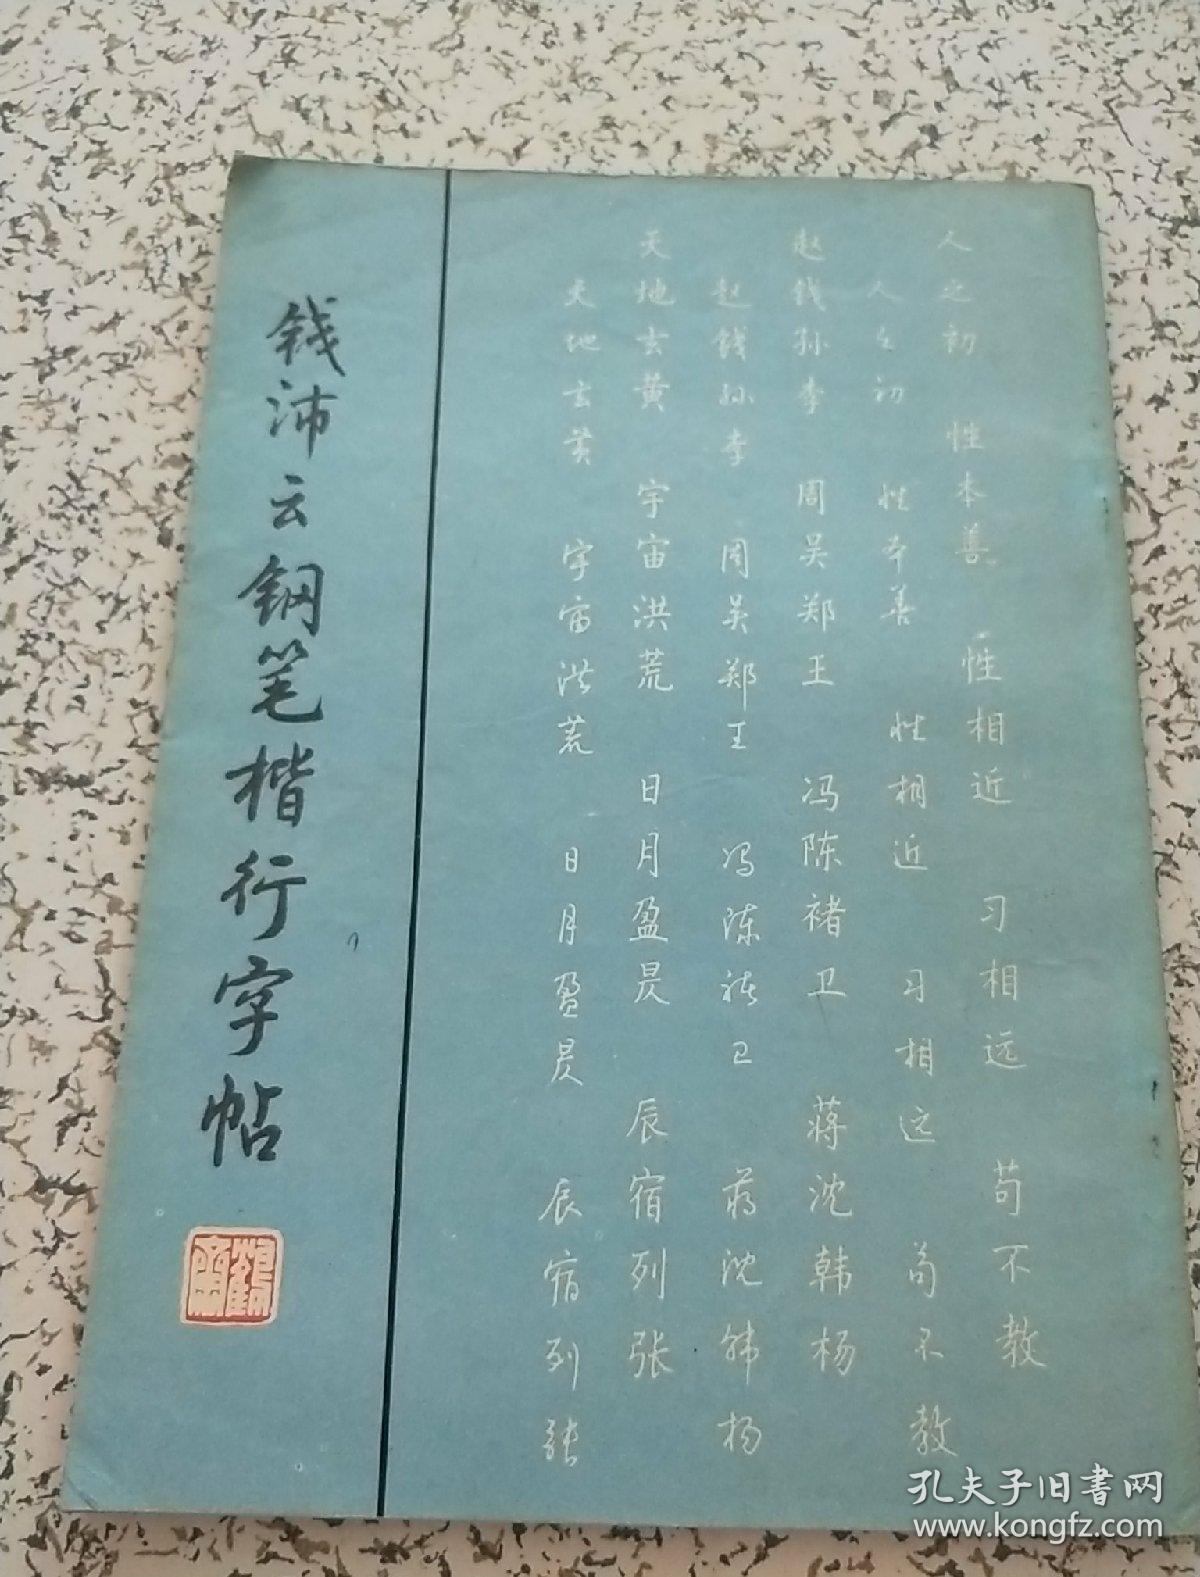 人之初 性本善 性相近 习相远 苟不教
人之初 性本善 性相近 习相远 苟不教
赵钱孙李 周吴郑王 冯陈褚卫 蒋沈韩杨
赵钱孙李 周吴郑王 冯陈褚卫 蒋沈韩杨
天地玄黄 宇宙洪荒 日月盈昃 辰宿列张
天地玄黄 宇宙洪荒 日月盈昃 辰宿列张
钱沛云钢笔楷行字帖
孔夫子旧书网
www.kongfz.com